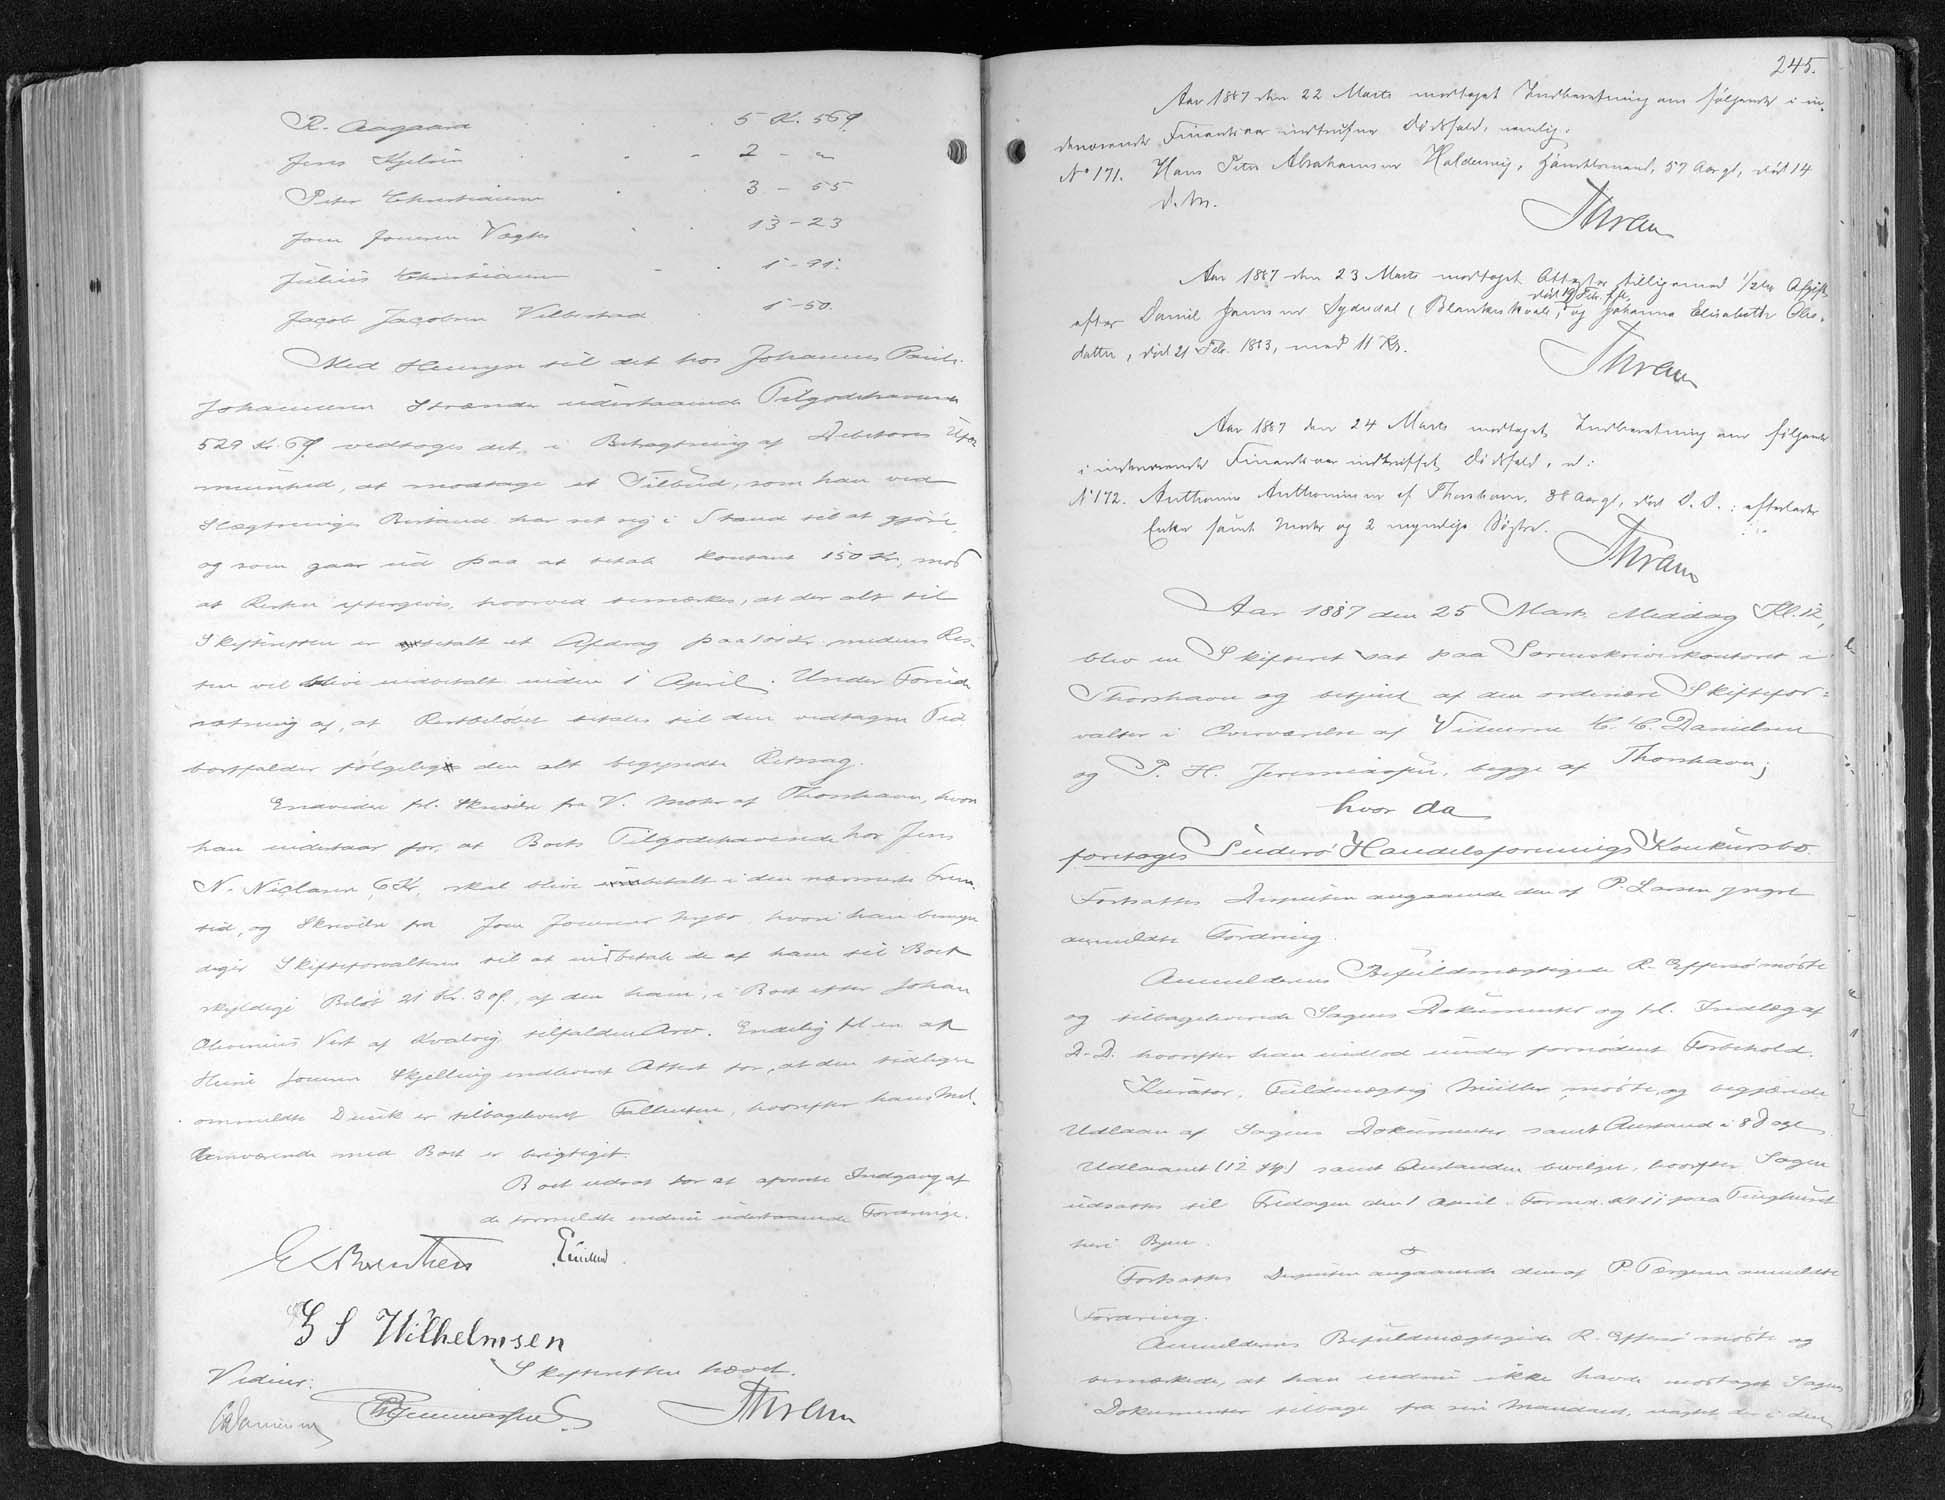 R. Aagaard . . . 5 K. 56 Ø.
Jens Kjelnes . . - 2 - "
Peter Christiansen . . 3 - 55
Joen Joensen Vagtes . . 13 - 23
Julius Christiansen - . 1 - 91.
Jacob Jacobsen Velbestad . 1 - 50.
Med Hensyn til det hos Johannes Pauls
Johannesen Strænde udestaaende Tilgodehavende
529 Kr. 69 vedtoges det, i Betragtning af Debitors Ufor
muenhed, at modtage et Tilbud, som han ved
Slægtninges Bistand har set sig i Stand til at gjøre
og som gaar ud paa at betale kontant 150 Kr, mod
at Resten eftergives, hvorved bemærkes, at der alt til
Skifteretten er betalt et Afdrag paa Kr. medens Res-
ten vil blive indbetalt inden 1 April. Under Forud
sætning af, at Restbeløbet betales til den vedtagne Tid
bortfalder følgelig den alt begyndte Retssag.
Endvidere fl. Skrivelse fra V. Mohr af Thorshavn, hvori
han indestaar for, at Boets Tilgodehavende hos Jens
N. Niclasen, 6 Kr, skal blive betalt i den nærmeste Frem
tid, og Skrivelse fra Joen Joensen Nybo hvori han bemyn
diger Skifteforvalteren til at indbetale de af ham til Boet
skyldige Beløb 21 Kr. 30 Ø, af den ham, i Boet efter Johan
af Kvalvig tilfaldne Arv. Endelig fl. en af
Heine Joensen Skjelling meddelt Attest for, at den tidligere
ommeldte Dunk er tilbageleveret Fallenten, hvorefter hans Mel-
lemværende med Boet er berigtiget.
Boet udsat for at afvente Indgang af
de formeldte endnu udestaaende Fordringer.
E. Müller
G S Wilhelmsen
Skifteretten hævet.
Vidner:
CCDanielsen PHJeremiassen Thram
245.
Aar 1887 den 22 Marts modtaget Indberetning om følgende i in-
deværende Finantsaar indtrufne Dødsfald, nemlig:
No 171. Hans Peter Abrahamsen Haldervig, Huusmand, 57 Aar gl, død 14
d. M.
Thram
Aar 1887 den 23 Marts modtaget Attester tilligemed 1/2 % Afgift
død 19 Feb. f. A.
efter Daniel Jensen Sydredal (Blankeskaale), og Johanna Elisabeth Ols-
datter, død 21 Feb. 1883, med 11 Kr.
Thram
Aar 1887 den 24 Marts modtaget Indberetning om følgende
i indeværende Finantsaar indtruffet Dødsfald, n:
No 172. Anthonius Anthoniussen af Thorshavn, 38 Aar gl, død D. D.: efterladt
Enke samt Moder og 2 myndige Søstre.
Thram
Aar 1887 den 25 Marts Middag Kl. 12,
blev en Skifteret sat paa Sorenskriverkontoret i
Thorshavn og betjent af den ordinære Skiftefor-
valter i Overværelse af Vidnerne C. C. Danielsen
og P. H. Jeremiassen, begge af Thorshavn;
hvor da
foretoges Suderø Handelsforenings Konkursbo.
Fortsattes Disputen angaaende den af P. Larsen yngre
anmeldte Fordring.
Anmelderens Befuldmægtigede R. Effersø mødte
og tilbageleverede Sagens Dokumenter og fl. Indlæg af
D. D. hvorefter han indlod under fornødent Forbehold.
Kurator, Fuldmægtig Müller mødte og begjærede
Udlaan af Sagens Dokumenter samt Anstand i 8 Dage
Udlaanet (12 Kl) samt Anstanden bevilget, hvorefter Sagen
udsattes til Fredagen den 1 April Formd. Kl. 11 paa Tinghuset
her i Byen.
Fortsattes Disputen angaaende den af P. Tærgesen anmeldte
Fordring.
Anmelderens Befuldmægtigede R. Effersø mødte og
bemærkede, at han endnu ikke havde modtaget Sagens
Dokumenter tilbage fra sin Mandant, uagtet der i den